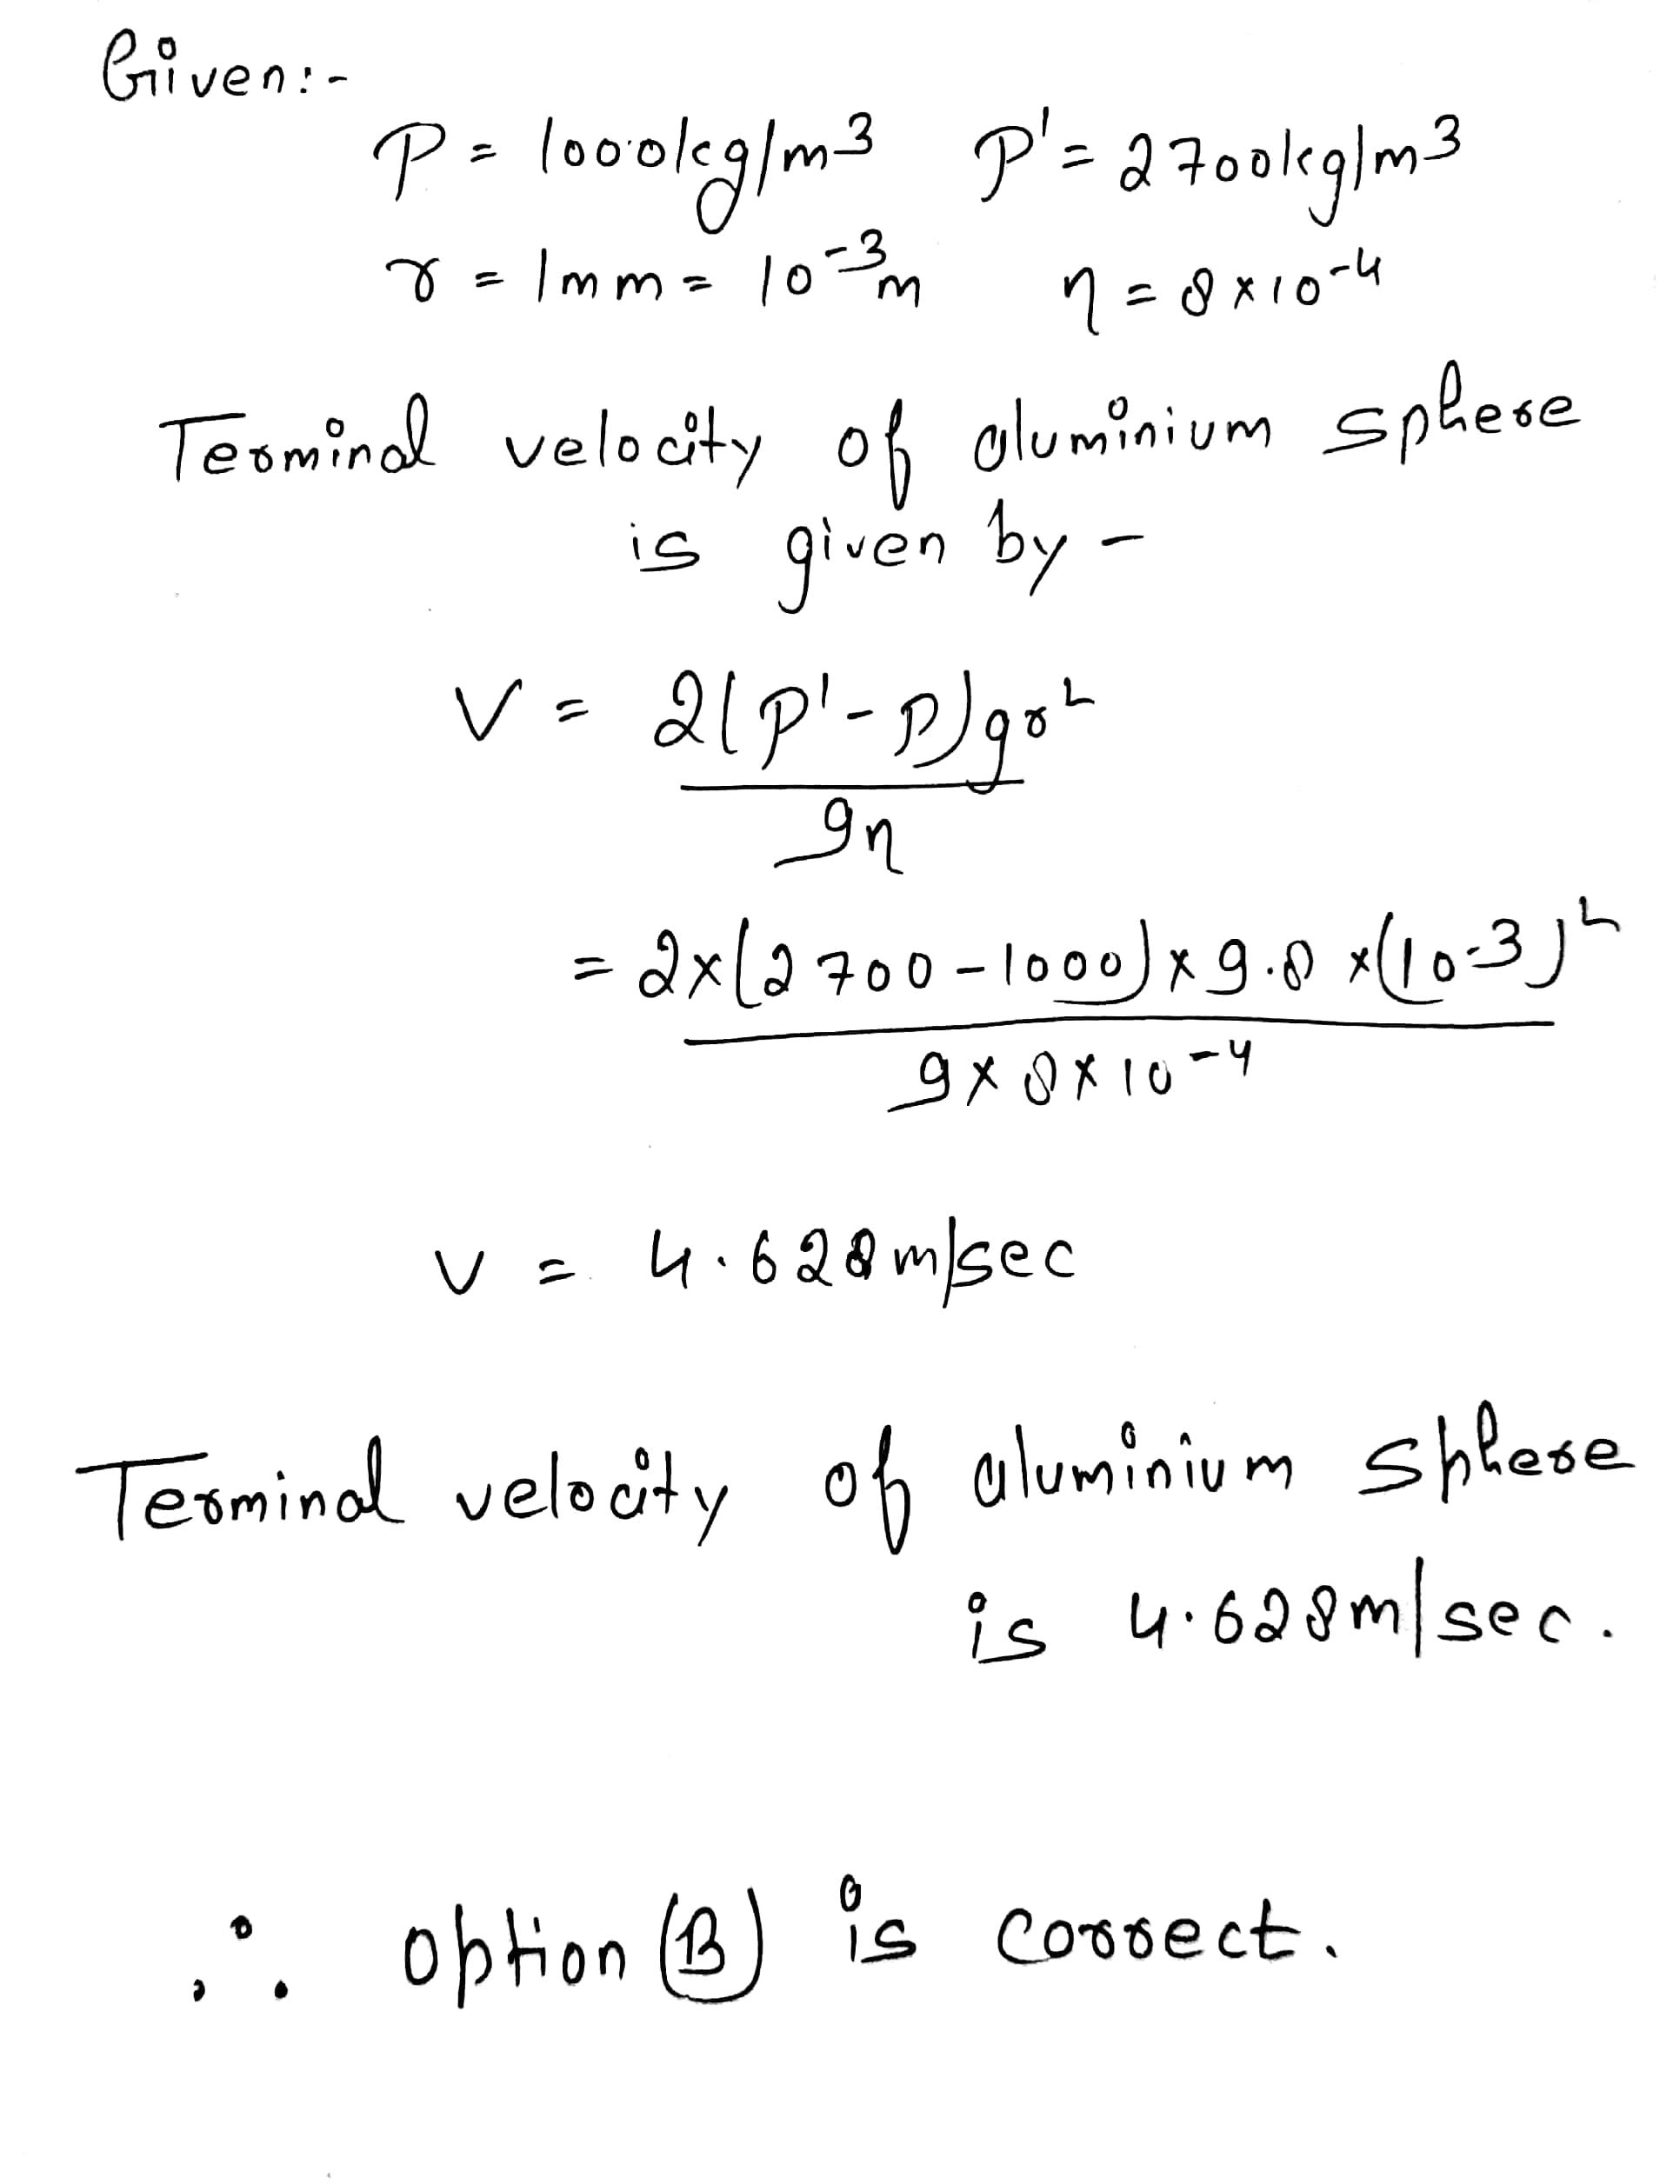 Given:-
P = 1000kg/m3 P' = 2700kg/m3
r = 1mm = 10-3m η = 8×10-4
Terminal velocity of aluminium sphere
is given by -
V = 2(P'-P)gr2
9η
= 2×(2700-1000)×9.8×(10-3)2
9×8×10-4
V = 4.628m/sec
Terminal velocity of aluminium sphere
is 4.628m/sec.
∴ option (B) is correct.